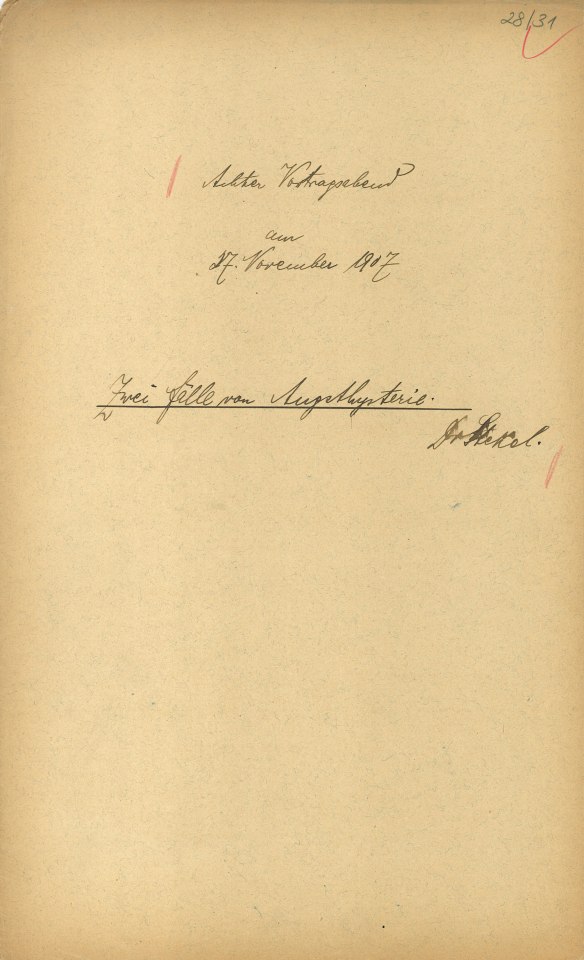 28/31
Achter Vortragsabend
am
27. November 1907
Zwei Fälle von Angsthysterie.
Dr Stekel.